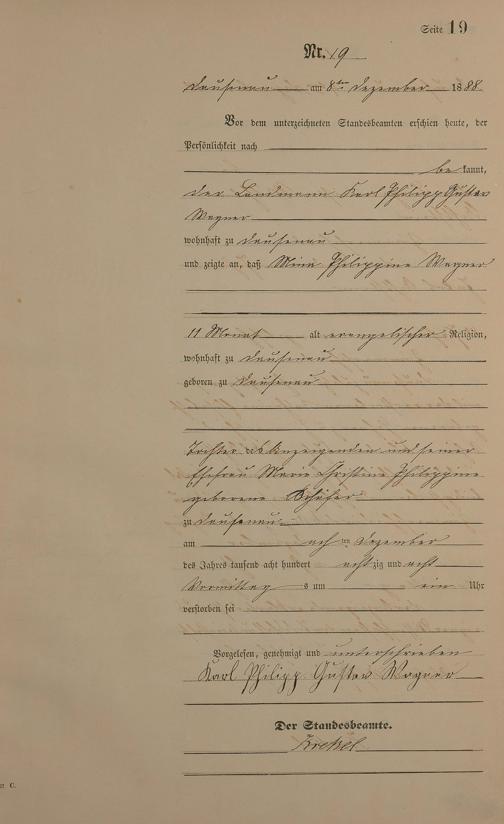 Seite 19
Nr. 19
Dausenau am 8ten Dezember 1888.
Vor dem unterzeichneten Standesbeamten erschien heute, der
Persönlichkeit nach
be kannt,
der Landmann Karl Philipp Gustav
Wagner
wohnhaft zu Dausenau
und zeigte an, daß Mina Philippine Wagner
11 Monat alt evangelischer Religion,
wohnhaft zu Dausenau
geboren zu Dausenau
Tochter des Anzeigenden und seiner
Ehefrau Marie Christine Philippine
geborene Schäfer
zu Dausenau
am acht ten Dezember
des Jahres tausend acht hundert acht zig und acht
Vormittag s um ein Uhr
verstorben sei
Vorgelesen, genehmigt und unterschrieben
Karl Philipp Gustav Wagner
Der Standesbeamte.
C.